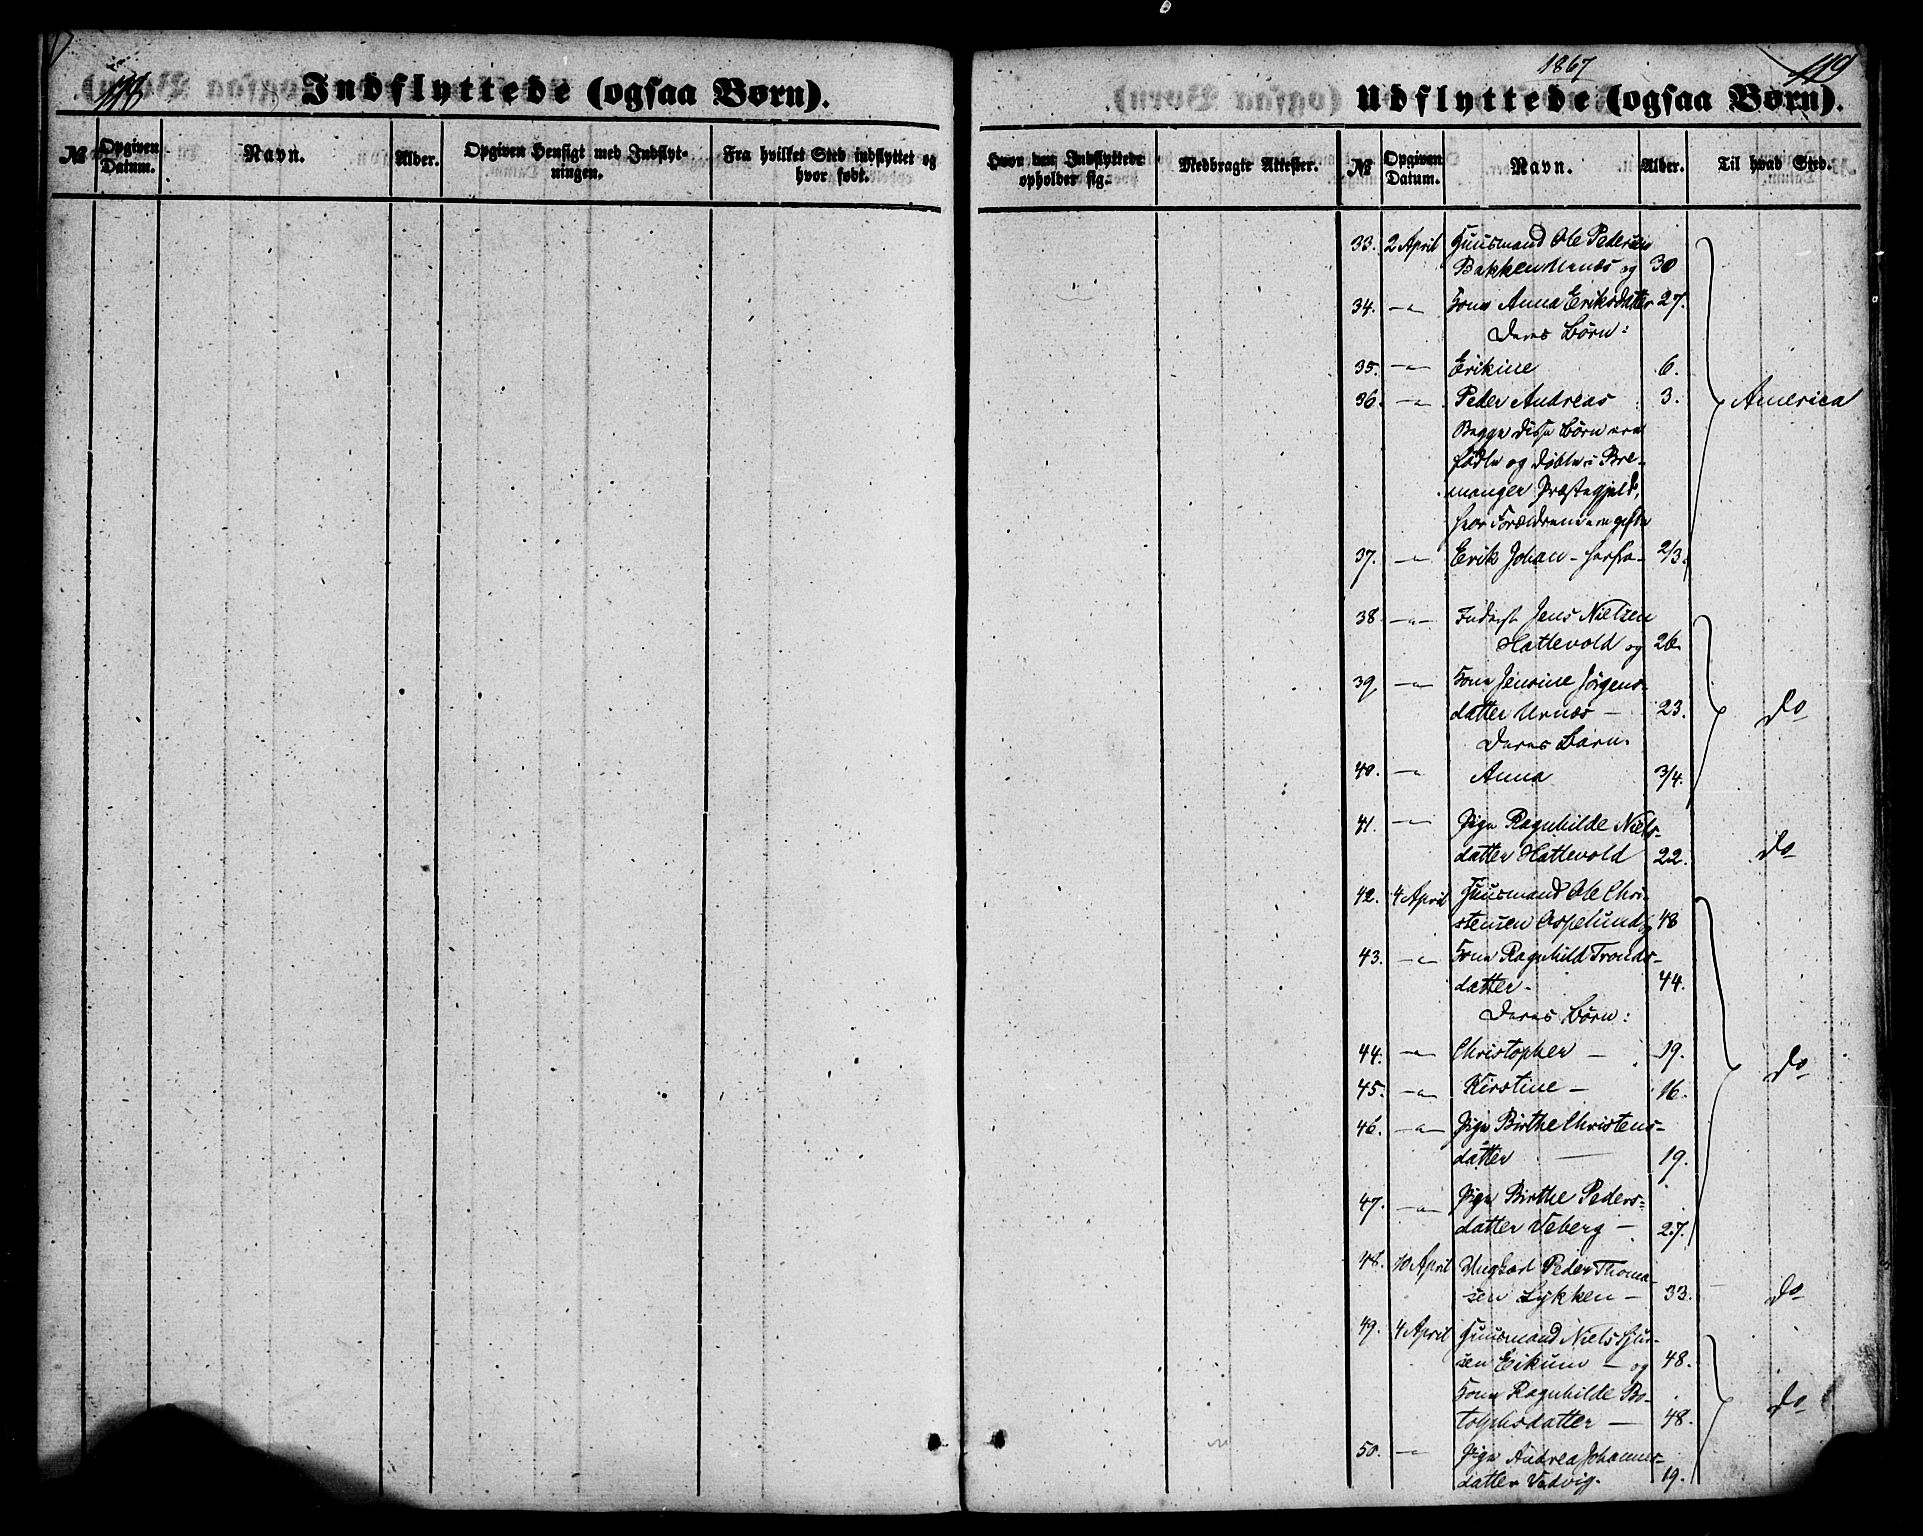 Indflyttede (ogsaa Børn).
№
Opgiven Datum.
Navn.
Alder.
Opgiven Hensigt med Indflyt-
ningen.
Fra hvilket Sted indflyttet og
hvor født.
1867
119
Udflyttede (ogsaa Børn).
Hvor den Indflyttede
opholder sig.
Medbragte Attester.
№
Opgiven Datum.
Navn.
Alder.
Til hvad Sted.
33. 2 April Huusmand Ole Pedersen
Bakken Urnæs og 30
34. -"- Kone Anna Eriksdatter 27.
Deres Børn:
35. -"- Erikine 6.
36. -"- Peder Andreas 3. America
Begge disse Børn ere
fødte og døbte i Bre-
manger Præstegjeld,
hvor Forældrene ere gifte
37. -"- Erik Johan - herfra - 2/3.
38. -"- Inderst Jens Nielsen
Hattevold og 26
39 -"- Kone Jensine Jørgens-
datter Urnæs - 23. do
Deres Barn.
40. -"- Anna 3/4.
41. -"- Pige Ragnhilde Niels-
datter Hattevold 22. do
42. 4 April Huusmand Ole Chri-
stensen Aspelund og 48
43. -"- Kone Ragnhild Tronds-
datter - 44.
Deres Børn:
44. -"- Christopher - 19. do
45. -"- Kirstine - 16.
46. -"- Pige Birthe Christens-
datter - 19.
47. -"- Pige Birthe Peders-
datter Veberg - 27.
48. 10 April Ungkarl Peder Thoma-
sen Lykken - 33. do
49. 4 April Huusmand Niels Sjur-
sen Eikum - og 48.
Kone Ragnhilde Bo-
tolphsdatter - 48. do
50. -"- Pige Andrea Johannes-
datter Vedvig. 19.